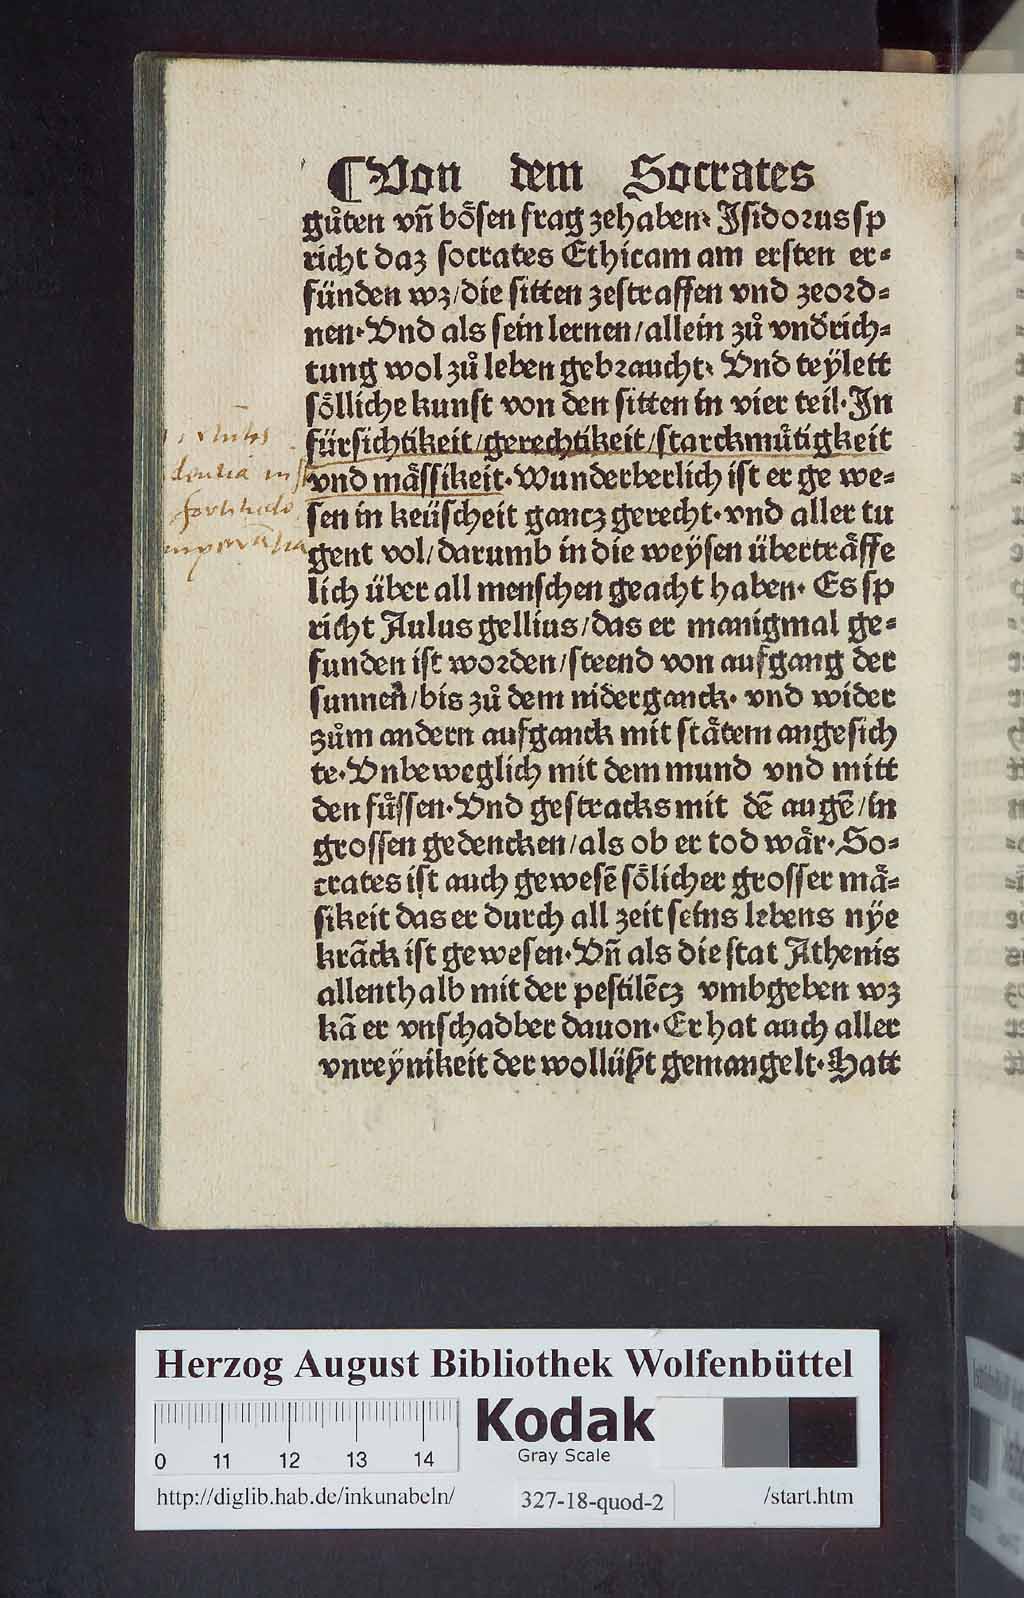 ¶Von dem Socrates
gůten vñ bösen frag zehaben· Jsidorus sp
richt daz socrates Ethicam am ersten er-
fünden wz/die sitten zestraffen vnd zeord-
nen·Vnd als sein lernen/allein zů vnd̕rich-
tung wol zů leben gebraucht· Vnd teÿlett
sölliche kunst von den sitten in vier teil·Jn
fürsichtikeit/gerechtikeit/starckmůtigkeit
vnd mässikeit·Wunderberlich ist er ge we-
sen in keüscheit gancz gerecht·vnd aller tu
gent vol/darumb in die weÿsen überträffe
lich über all menschen geacht haben· Es sp
richt Aulus gellius/das er manigmal ge-
funden ist worden/steend von aufgang der
sunnen/bis zů dem niderganck· vnd wider
zům andern aufganck mit stätem angesich
te·Vnbeweglich mit dem mund vnd mitt
den füssen·Vnd gestracks mit dē augē/in
grossen gedencken/als ob er tod wär·So-
crates ist auch gewesē sölicher grosser mä-
sikeit das er durch all zeit seins lebens nÿe
krāck ist gewesen·Vñ als die stat Athenis
allenthalb mit der pestilēcz vmbgeben wz
kā er vnschadber dauon·Er hat auch aller
vnreÿnikeit der wollüßt gemangelt·Hatt
fortitudo
Herzog August Bibliothek Wolfenbüttel
0 11 12 13 14
Kodak
Gray Scale
http://diglib.hab.de/inkunabeln/ 327-18-quod-2 /start.htm